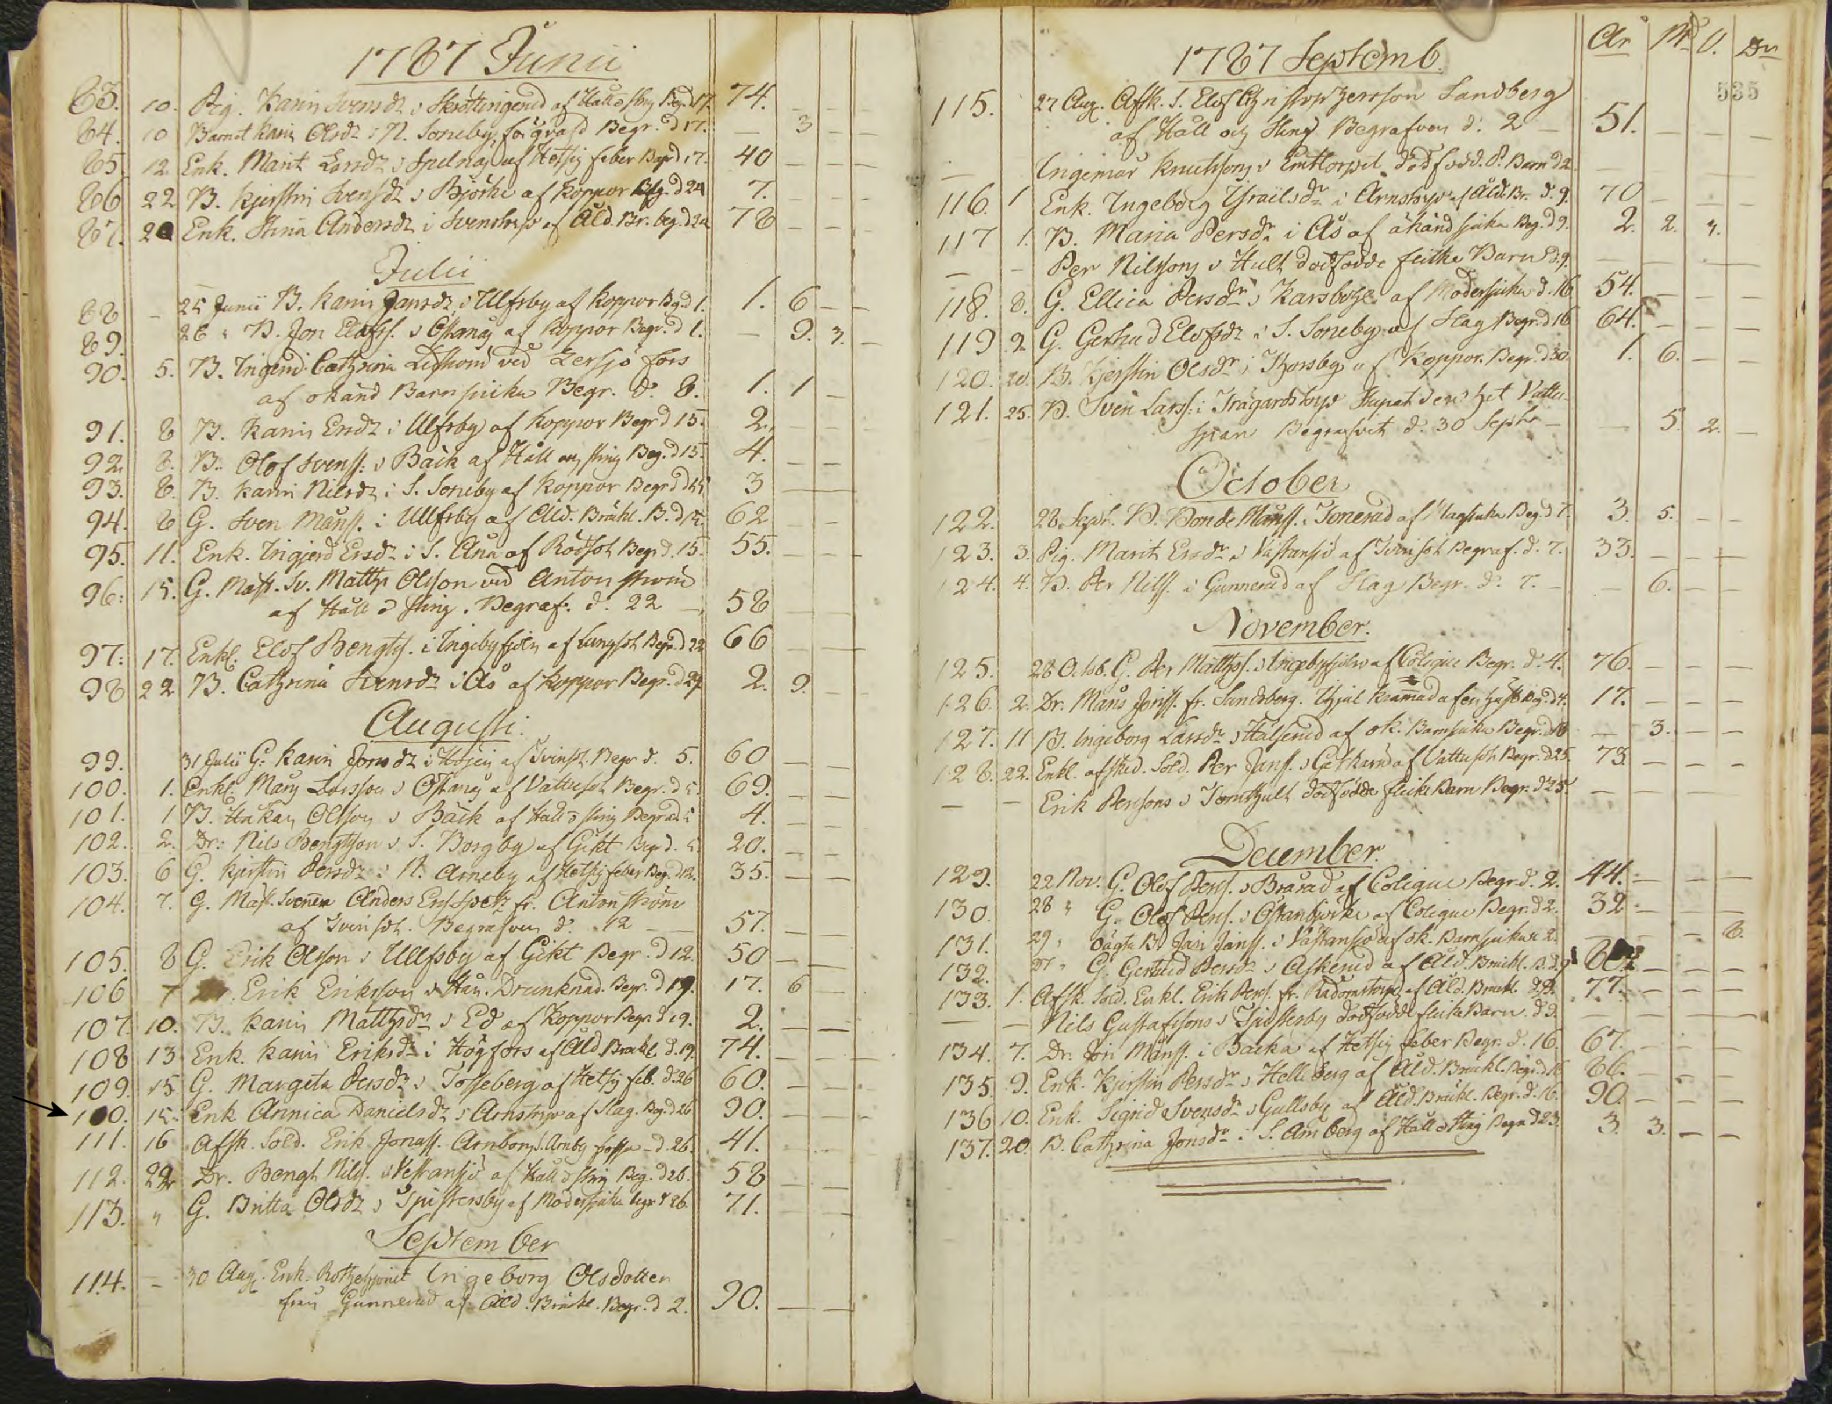 1787 Junii
83. 10. Pig. Karin Svensdr i Skottingerud af Håll o styng Begr. d 17. 74. – –
84. 10 Barnet Karin Olsdr i N. Soneby, Begr. d 17. – 3 –
85. 12. Enk. Marit Larsdr i Spelnäs af Hetsig feber Begr. d 17. 40 – – –
86 22 B. Kjerstin Svensdr i Björke af Koppor Begr. d 24 7. – – –
87. 20 Enk. Stina Andersdr i Svenstorp af Åld. Br. beg. d 24 78 – – –
Julii
88 – 25 Junii B. Karin Jansdr i Ulfsby af Koppor Beg. d 1. 1. 6 – –
89. 26 " B. Jon Elofss. i Östanås af Koppor Begr. d 1. – 9. 3. –
90. 5. B. Ingrid Cathrina ved Lersjö fors
af okänd Barnsjuka Begr. d. 8. 1. 1 –
91. 8 B. Karin Ersdr i Ulfsby af Koppor Begr d 15. 2. – –
92. 8. B. Olof Svenss. i Bäck af Håll och styng Beg. d 15. 4. – –
93. 8. B. Karin Nilsdr i S. Soneby af Koppor Begr d 15 3 – –
94. 8 G. Sven Månss. i Ullfsby af Åld. Bräckl. B. d 15. 62 – –
95. 11. Enk. Ingierd Ersdr i S. Åna af Rödsot Begr d. 15. 55. – –
96: 15. G. Mäst. Sv. Matths Olsson ved Anton ström
af Håll o styng. Begraf. d. 22 – 58 – –
97: 17. Enkl: Elof Bengtss. i Ingebyfjoln af Lungsot Begr. d 22 66 – –
98 22 B. Cathrina Svensdr i Ås af Koppor Begr. d 29 2. 9. – –
Augusti.
99. 31 Julii G. Karin Jonsdr i Höjen af Tvinsot. Begr d. 5. 60 – –
100. 1. Enkl. Måns Larsson i Östanås af Vattusot Begr. d 5. 69. – –
101. 1 B. Håkan Olsson i Bäck af Håll o styng Begr d 5 4. – –
102. 2. Dr: Nils Bengtsson i S. Borgby af Gikt Begr d. 5. 20. – –
103. 6 G. Kjerstin Persdr i N. Arneby af Hetsig feber Beg. d 12. 35. – –
104. 7. G. Mäst. Svennen Anders Ersson fr. Anton ström
af Tvinsot. Begrafven d. 12 – 57. – –
105. 8 G. Erik Olsson i Ullfsby af Gikt Begr. d 12. 50 – –
106 7 Dr. Erik Eriksson Drunknad. Begr. d 19. 17. 6 –
107. 10. B. Karin Mattsdr i Ed af Koppor Begr d 19. 2. – –
108 13 Enk. Karin Eriksdr i Högfors af Åld. Bräckl. d. 19. 74. – –
109. 15 G. Margeta Persdr i Tosseberg af Hetsig feb. d 26 60. – –
110. 15. Enk Annica Danielsdr i Arnstorp af Slag. Beg. d 26 90. – –
111. 16 Afsk. Sold. Erik Jonass. Arnborg d 26. 41. – –
112. 22 Dr. Bengt Nilss. i Vestansjö af Håll o styng Beg. d 26. 58 – –
113. " G. Britta Olsdr i Spistersby af Modersjuka begr d 26. 71. – –
September
114. – 30 Aug. Enk. Ingeborg Olsdotter
från Gunnerud af Åld. Bräckl. Begr. d 2. 90. – –
1787 Septemb. År M D.
535
115. 27 Aug. Afsk. S. Elof Christopher Jersson Sandberg
af Håll och styng Begrafven d. 2 – 51. – – –
– Ingemar Knutssons i Emtorpet dödfödd. P. Barn d 2
116. 1 Enk. Ingeborg Israilsdr i Arnstorp af Åld. Br. d. 9. 70 – – –
117 1. B. Maria Persdr i Ås af okänd sjuka Beg. d 9. 2. 2. 3.
– – Per Nilssons i Hult dödfödde flicke Barn d 9. – – –
118. 8. G. Ellica Persdr i Karsbohl af Modersjuka d. 16 54. – – –
119 9. G. Gertrud Elofsdr i S. Soneby af Slag Begr. d 16 64. – – –
120. 20. B. Kjerstin Olsdr i Korsby af Koppor. Begr. d 30 1. 6. – –
121. 25. B. Sven Larss. i Trägårdstorp Stupat i en het Vattu-
span Begrafvit d. 30 Septr – – 5. 2. –
October
122. 28 Septr. B. Bonde Månss. i Tonerud af Magsjuka Beg. d 7. 3. 5. – –
123. 3. Pig. Marit Ersdr i Västansjö af Tvinsot Begraf. d. 7. 33. – – –
124. 4. B. Per Nilss. i Gunnerud af Slag Begr. d. 7. – – 6. – –
November.
125. 28 Octob. G. Per Mattss. i Ingebyfjoln af Colique Begr. d. 4. 76. – – –
126. 2. Dr. Måns Jonss. fr. Sundsberg. Ihjäl klämmad af en häst Beg. d 4. 17. – – –
127. 11 B. Ingeborg Larsdr i Halserud af ok. Barnsjuka Begr. d 18 – 3. – –
128. 22. Enkl. afsked. Sold. Per Janss. i Gåthärad af Vattusot Begr. d 25. 73 – – –
– – Erik Perssons i Tomthult dödfödda flicke Barn Begr. d 25. – –
December.
129. 22 Nov. G. Olof Perss. i Brårud af Colique Begr. d. 2. 44. – – –
130. 28 " G. Olof Perss. i Östanbjörke af Colique Begr. d 2. 32 – – –
131. 29 " Oägta B. Jan Janss. i Västansjö af ok. Barnsjuka 2. – – – 8.
132. " G. Gertrud Persdr i Askerud af Åld. Bräckl. B. d 9 – – –
133. 1. Afsk. Sold. Enkl. Erik Perss. fr. Rådomstorp af Åld. Bräckl. d 9. 77. – – –
– – Nils Gustafssons i Spistersby dödfödde flicke Barn. d 9. – – – –
134. 7. Dr. Jon Månss. i Backa af Hetsig feber Begr. d. 16. 67. – – –
135. 9. Enk. Kjerstin Persdr i Helleberg af Åld. Bräckl. Begr. d 16 86. – – –
136 10. Enk. Sigrid Svensdr i Gullsby af Åld. Bräckl. Begr. d. 16. 90. – – –
137. 20. B. Cathrina Jonsdr i S. Åmberg af Håll o styng Begr. d 23. 3. 3. – –